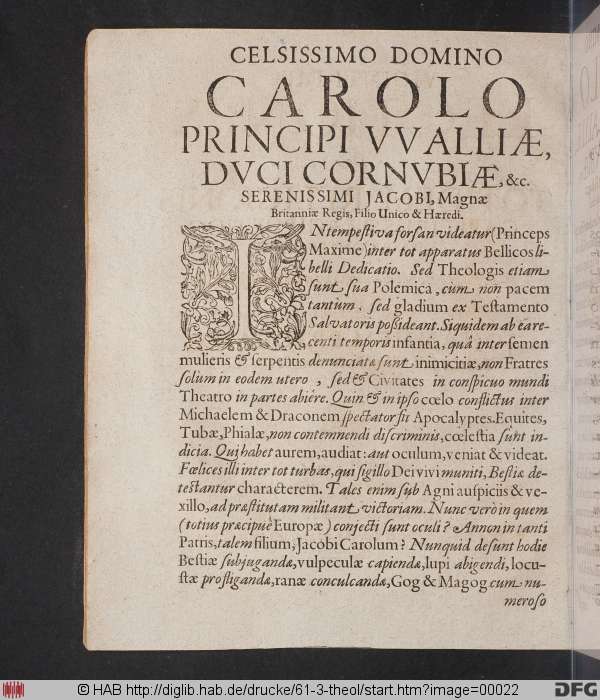 CELSISSIMO DOMINO
CAROLO
PRINCIPI VVALLIÆ,
DVCI CORNVBIÆ, &c.
SERENISSIMI JACOBI, Magnæ
Britanniæ Regis, Filio Unico & Hæredi.
INtempestiva forsan videatur (Princeps
Maxime) inter tot apparatus Bellicos li-
belli Dedicatio. Sed Theologis etiam
sunt sua Polemica, cum non pacem
tantum, sed gladium ex Testamento
Salvatoris possideant. Siquidem ab eare-
centi temporis infantia, quâ inter semen
mulieris & serpentis denunciatæ sunt inimicitiæ, non Fratres
solùm in eodem utero, sed & Civitates in conspicuo mundi
Theatro in partes abiêre. Quin & in ipso cœlo conflictus inter
Michaelem & Draconem spectator fit Apocalyptes. Equites,
Tubæ, Phialæ, non contemnendi discriminis, cœlestia sunt in-
dicia. Qui habet aurem, audiat: aut oculum, veniat & videat.
Fœlices illi inter tot turbas, qui sigillo Dei vivi muniti, Bestiæ de-
testantur characterem. Tales enim sub Agni auspiciis & ve-
xillo, ad præstitutam militant victoriam. Nunc verò in quem
(totius præcipuè Europæ) conjecti sunt oculi? Annon in tanti
Patris, talem filium, Jacobi Carolum? Nunquid desunt hodie
Bestiæ subjugandæ, vulpeculæ capiendæ, lupi abigendi, locu-
stæ profligandæ, ranæ conculcandæ, Gog & Magog cum nu-
meroso
© HAB http://diglib.hab.de/drucke/61-3-theol/start.htm?image=00022
DFG